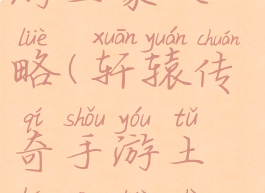 lüè xuān yuán chuán
略(轩辕传
qí shǒu yóu tǔ
奇手游土